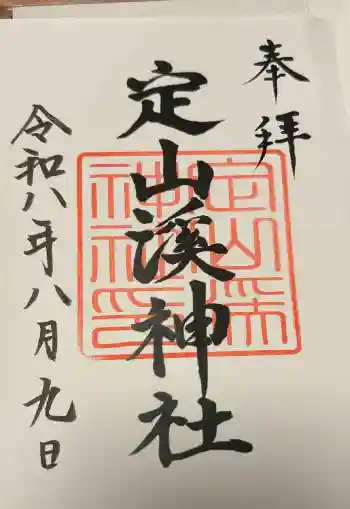 奉拝
定山溪神社
令和八年八月九日
定山渓
神社印